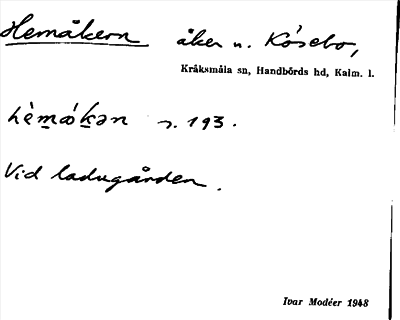 Hemåkern åker n. Kösebo,
Kråksmåla sn, Handbörds hd, Kalm. l.
hèmǻkən s. 193.
Vid ladugården.
Ivar Modéer 1948